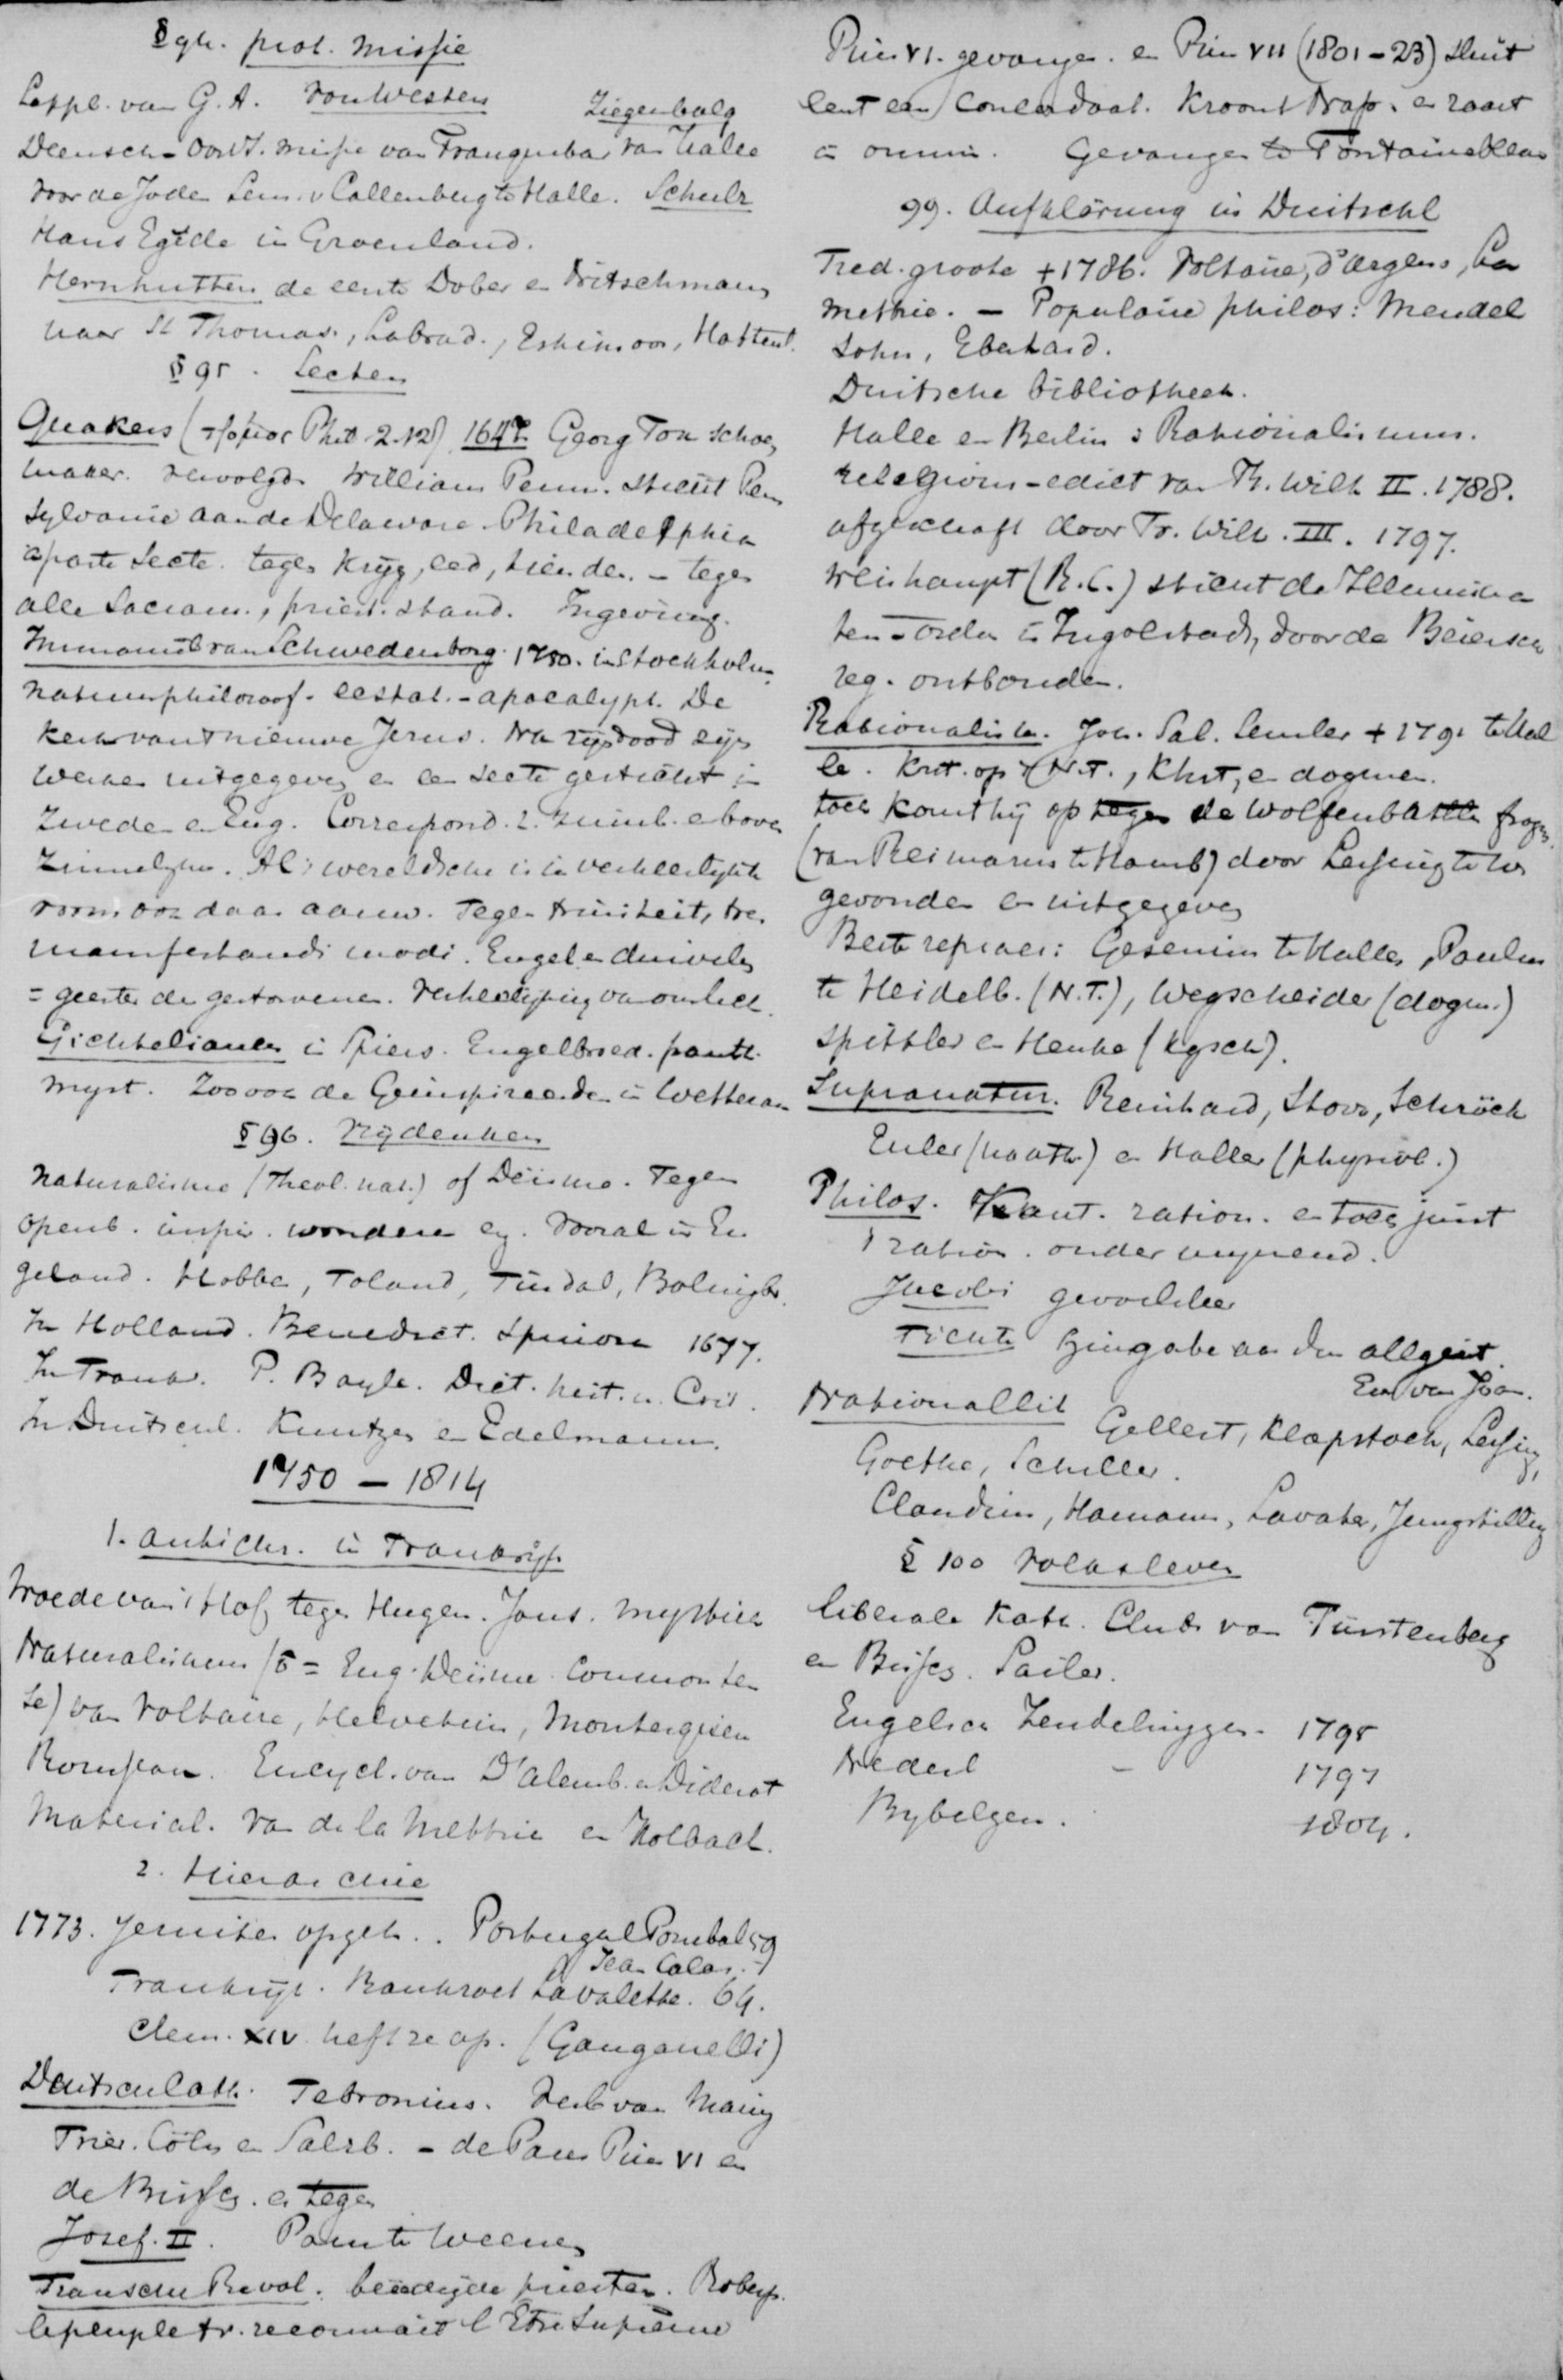 § 94. prot. missie
Lappl. van G. A. von Westen
Ziegenbalg
Deensch-Oost. missie van Tranquebar van Halle
voor de Joden Sem. v Callenberg te Halle. Schulz
Hans Egede in Groenland.
Hernhutters de eerste Dober en Nitschmann
naar St Thomas., Labrad., Eskimoos, Hottent.
§ 95. Secten
Quakers (τρόμος Phil 2.12) 1647 Georg Fox schoen
maker. vervolgd. William Penn. sticht Pen
sylvanie aan de Delaware Philadelphia
aparte secte. tegen krijg, eed, tienden. – tegen
alle Sacram., priest. stand. Ingeving.
Immanuël van Schwedenborg. 1750. in Stockholm
natuurphilosoof. eestat. - apocalypt. De
kerk van 't nieuwe Jerus. Na zijn dood zijn
werken uitgegeven en een secte gesticht in
Zweden en Eng. Correspond. t. zinnel. en boven
zinnelijke. Al 't wereldsche is in verheerlijkte
vorm ook daar aanw. Tegen triniteit, tres
manifestandi modi. Engel en duivelen
= geesten der gestorvenen. Verheerlijking van ons lich.
Gichtelianen in Spiers. Engelbroed. panth.
myst. Zoo ook de Geinspireerden in Wetterau
§ 96. Vrijdenkers
Naturalisme (Theol. nat.) of Deïsme. Tegen
openb. inspir. wonderen en. Vooral in En
geland. Hobbes, Toland, Tindal, Bolingbr.
In Holland. Benedict. Spinoza 1677.
In Frankr. P. Bayle. Dict. hist. u. Crit.
In Duitschl. Knutzen en Edelmann.
1750 – 1814
1. antichr. in Frankrijk
Woede van 't Hof tegen Hugen. Jans. mystiek
Naturalismus (= Eng. Deïsme. Common sen
se) van Voltaire, Helvetius, Montesquieu
Rousseau. Encycl. van D'Alemb. en Diderot
Material. van de la Mettrie en Holbach.
2. Hierarchie
1773. Jezuiten opgeh. . Portugal Pombal 59
Jean Calas.
Frankrijk. Bankroet Lavalette. 64.
Clem. XIV heft ze op. (Ganganelli)
Duitschl ath. Febronius. Verb van Mainz
Trier. Cöln en Salzb. – de Paus Pius VI en
de Bissch. er tegen
Josef. II. Paus te Weenen
Fransche Revol. beëedigde priesters. Robesp.
le peuple fr. reconnait l'Etre Suprème
Pius VI. gevangen. en Pius VII (1801-23) sluit
Concordaat. Kroont Nap. en
Gevangen te Fontainebleau
99. Aufklärung in Duitschl
Fred. groote + 1786. Voltaire, d'Argens, La
Methrie. – Populaire philos: Mendel
sohn, Eberhard.
Duitsche bibliotheek.
Halle en Berlin: Rationalismus.
Religions-edict van Fr. Wilh II. 1788.
afgeschaft door Fr. Wilh. III. 1797.
Weishaupt (R.C.) sticht de Illumina
ten-orden in Ingolstadt, door de Beiersche
reg. ontbonden.
Rationalisten. Joh. Sal. Semler + 1791 te Hal
le. Krit. op 't N.T., Khist, en dogmen.
toch komt hij op tegen de Wolfenbuttel fragm.
(van Reimarus te Hamb) door Lessing te W
gevonden en uitgegeven
Beste repraes: Gesenius te Halle, Paulus
te Heidelb. (N.T.), Wegscheider (dogm.)
Spittler en Henke (kgsch).
Supranatur. Reinhard, Storr, Schröck
Euler (math) en Haller (physiol.)
Philos. Kant. ration. en toch juist
't ration. ondermijnend.
Jacobi gevoelsleer
Fichte Hingabe aan den allgeist.
Ev. van Joan.
Nationallit Gellert, Klopstock, Lessing,
Goethe, Schiller.
Claudius, Hamann, Lavater, Jungstilling
§ 100 Volksleven
liberale Kath. Club van Fürstenberg
en Bissch. Sailer.
Engelsch Zendelinggen. 1795
Nederl – 1797
Bybelgen. 1804.